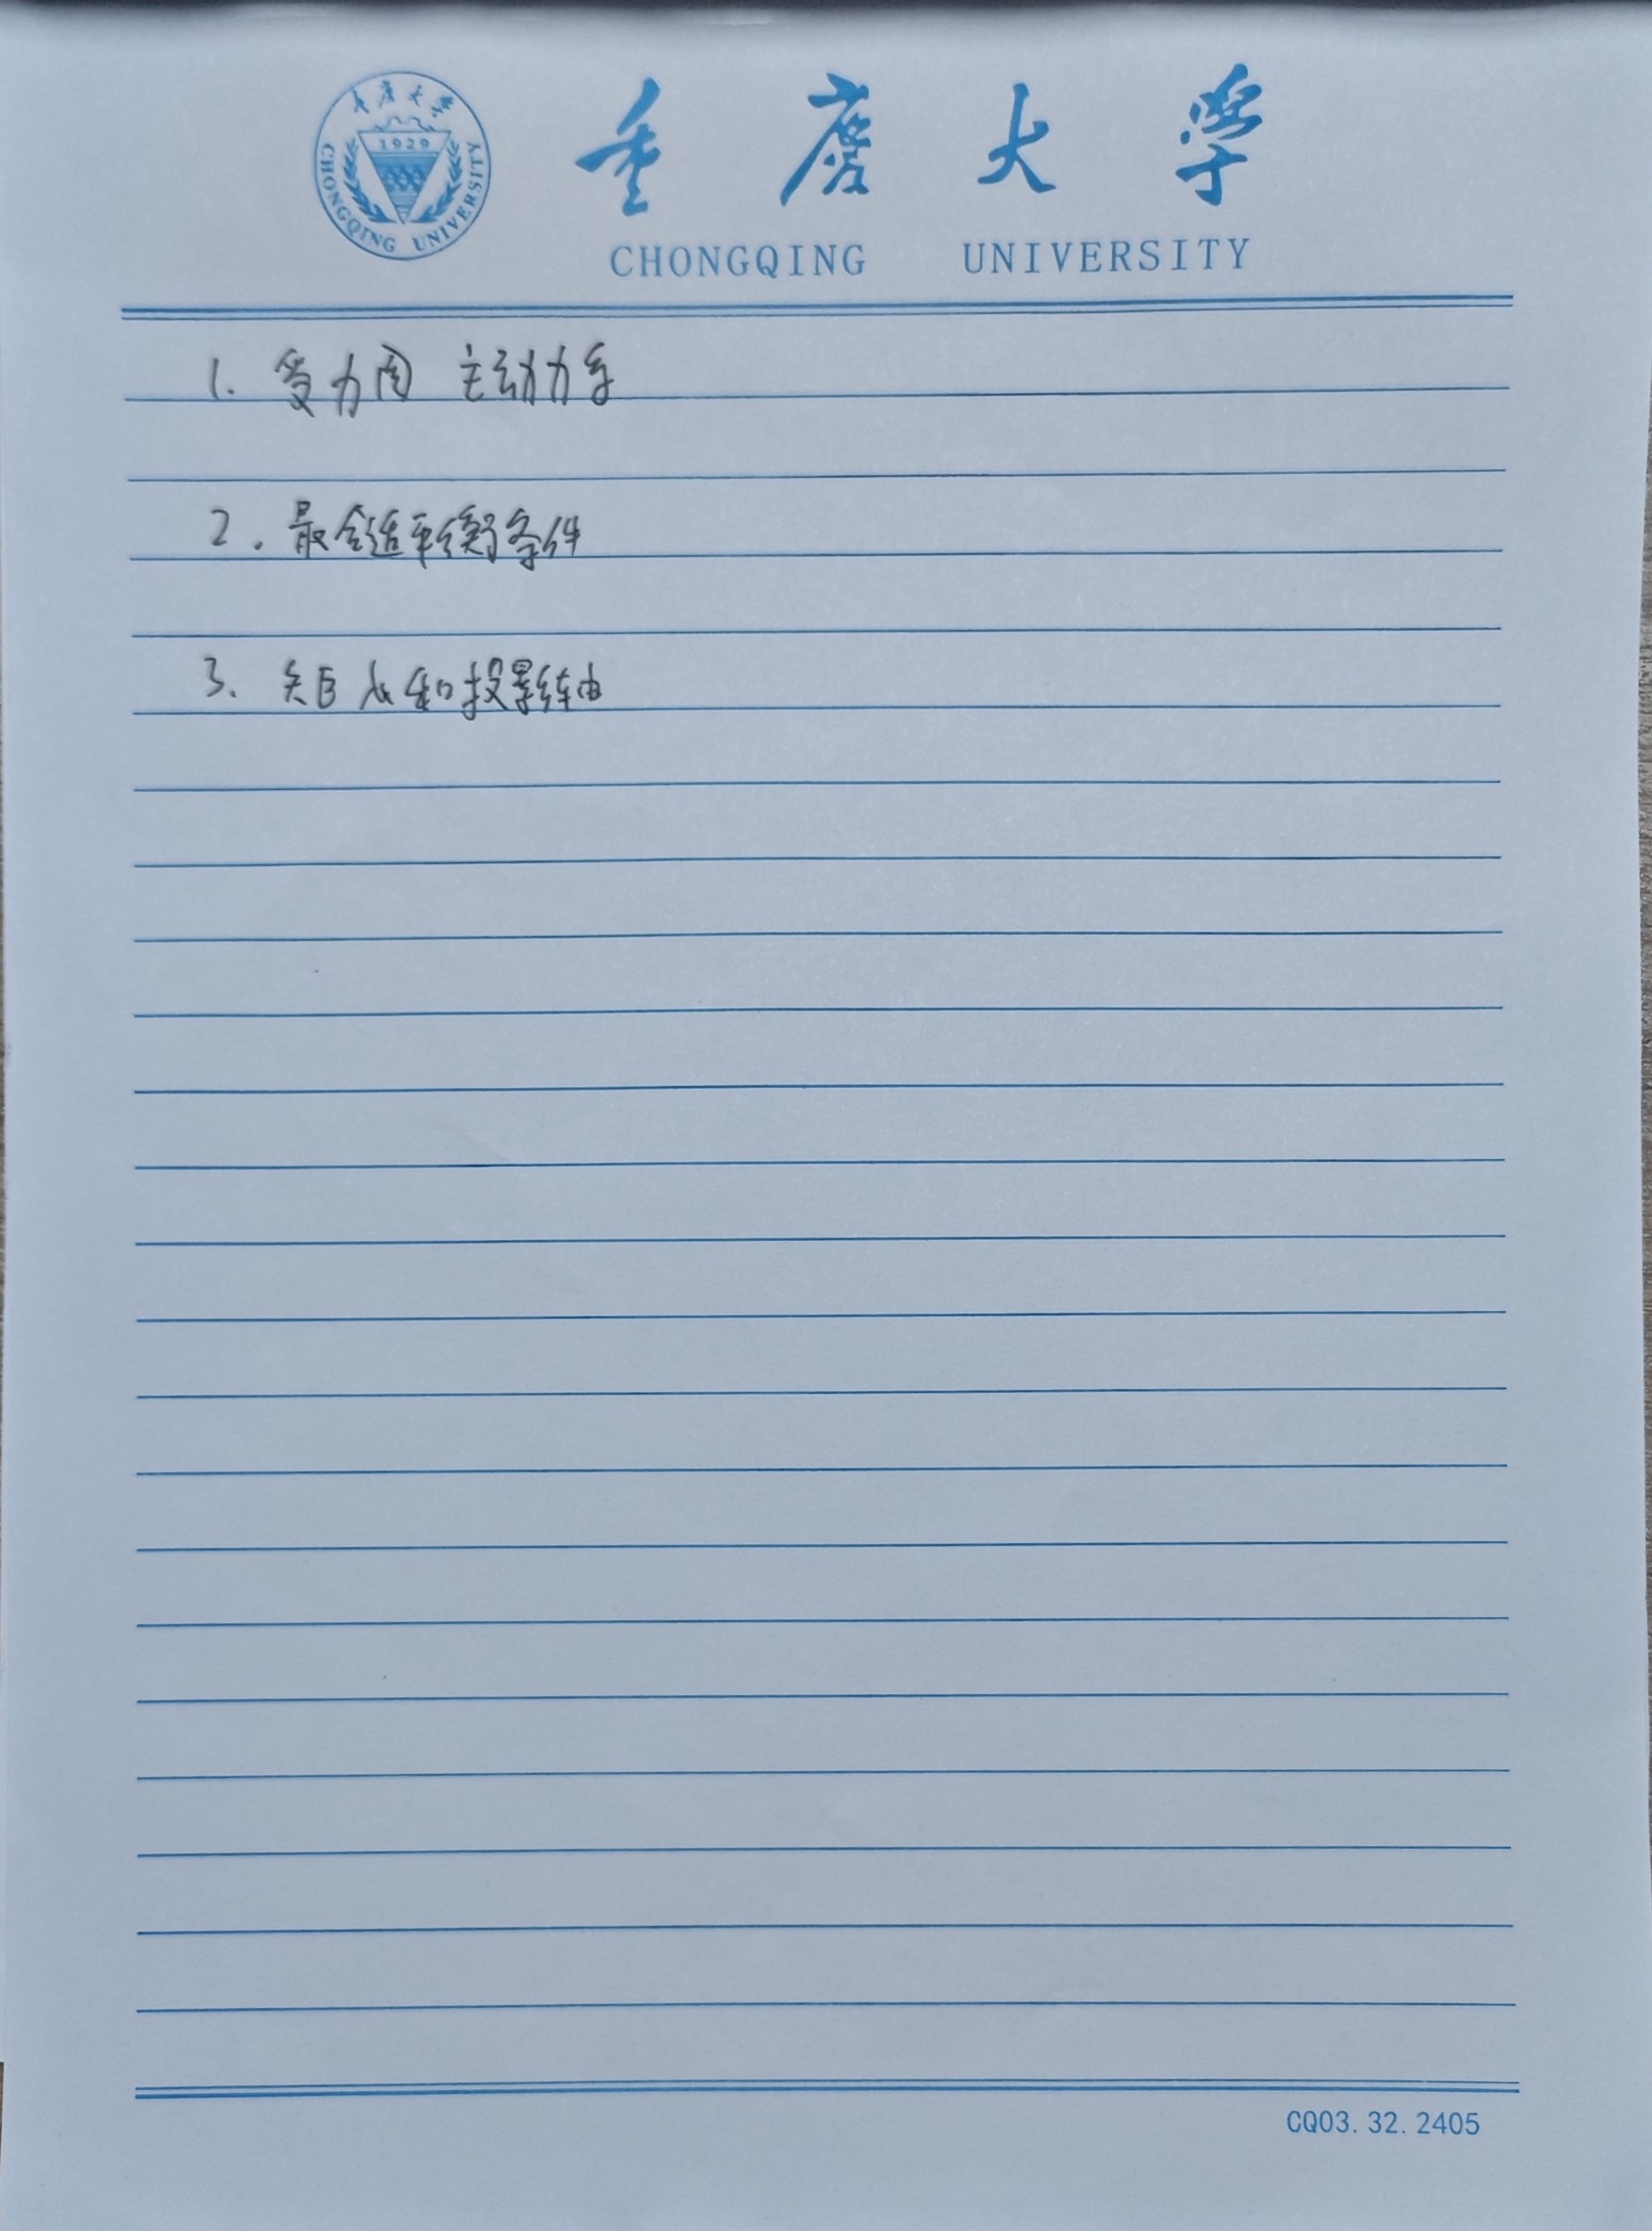 重庆大学
1929
CHONGQING UNIVERSITY
重庆大学
CHONGQING UNIVERSITY
1. 受力图 主动力系
2. 最合适平衡条件
3. 矩心和投影轴
CQ03.32.2405